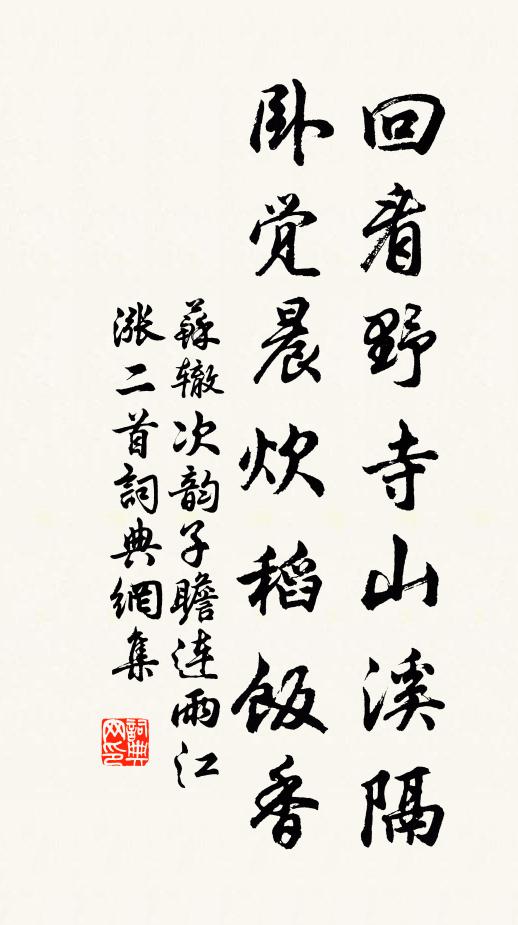 回看野寺山溪隔
卧觉晨炊稻飯香
蘇辙次韵子瞻連雨江
漲二首詞典網集
詞典網印